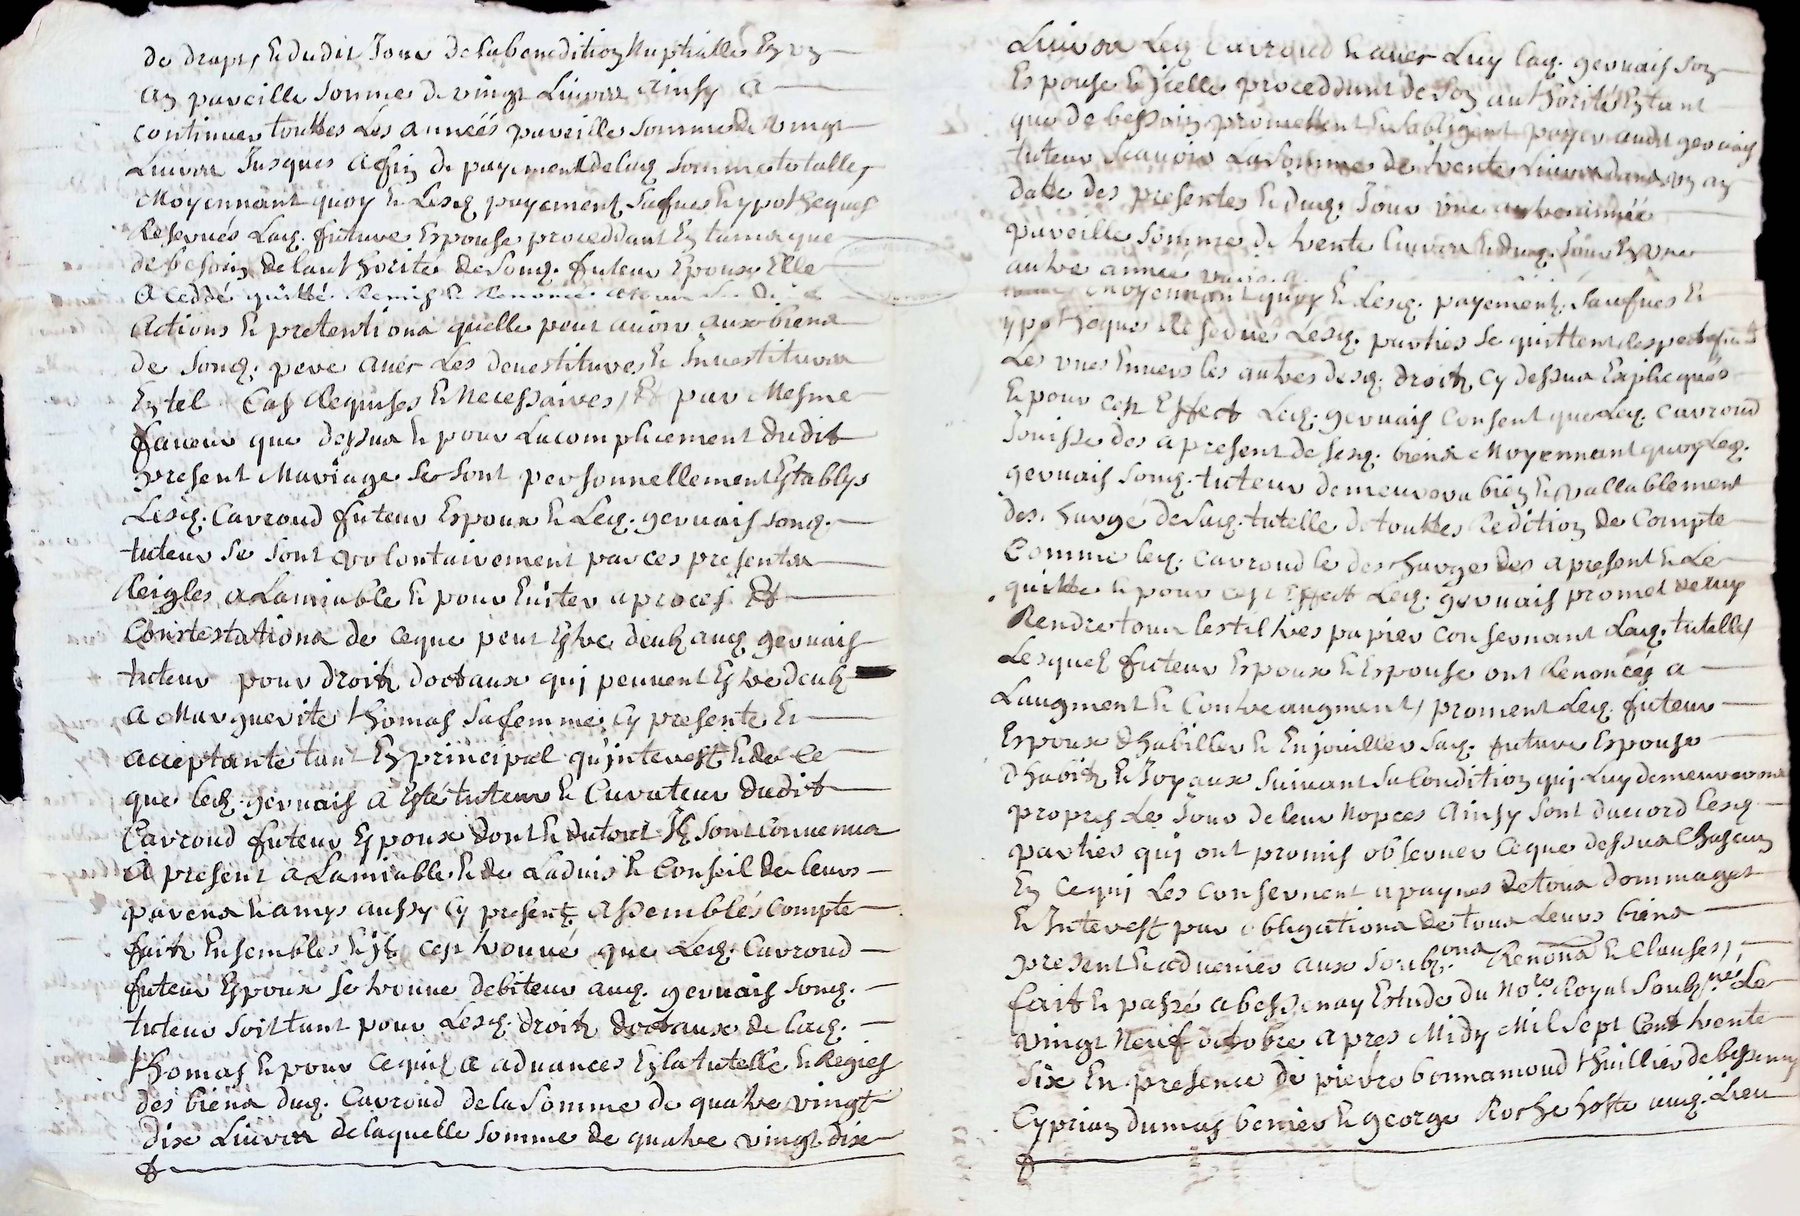 de draps, et dudit Jour de la benedition Nuptialle En un
an pareille Somme de vingt Livres Ainsy a
continuer touttes Les années pareille Somme de vingt
Livres Jusques a fin de payement de lad. Somme totalle,
Moyennant quoy et Lesd. payement, Saufues hypotheques
Reserués Lad. future Espouse proceddant En tama que
de besoin de lauthorité de Sond. futeur Epoux Elle
a ceddé quitté Remis et Renoncé
Actions et pretentions quelle peut auoir aux biens
de Sond. pere auec Les deuestitures et Inuestitures
En tel Cas Requises et Necessaires, Et par Mesme
faueur que dessus et pour Lacomplicement dudit
present Mariage Se Sont personnellement Establys
Lesd. Carroud futeur Espoux et Led. geruais Sond.
tuteur Se Sont volontairement par ces presentes
Reigles a Lamiable et pour Euiter a proces Et
Contestations de ceque peut Estre deub aud. geruais
tuteur pour droitz dotaux quj peuuent Estre deub
a Marguerite thomas Sa femme, Cy presente Et
acceptante tant En principal qu'interest et de ce
que led. geruais a Esté tuteur et Curateur dudit
Carroud futeur Espoux dont et du tout Jls Sont Conuenus
A present a Lamiable et de Laduis et Conseil de leurs
parens et amys aussy Cy presentz assemblés Compte
faitz Ensembles Et Jl cest trouué que Led. Carroud
futeur Espoux Se trouue debiteur aud. geruais Sond.
tuteur Soit tant pour Lesd. droitz dotaux de lad.
thomas et pour cequil a aduances En la tutelle et Regies
des biens dud. Carroud de la Somme de quatre vingt
dix Liures de laquelle Somme de quatre vingt dix
Liures Led. Carroud et auec Luy lad. geruais Son
Espouse et Jcelle proceddant de Son authorité En tant
que de bessoin promettent et Sobligent payer audit geruais
tuteur Scauoir La Somme de trente Liures dans un an
datte des presentes et dud. Jour une autre année
pareille Somme de trente liures et dud. Jour En une
autre année
Moyennant quoy et Lesd. payement, Saufues et
ypotheques Reserués Lesd. parties Se quittent respectiuemt
Les unes Enuers les autres desd. droitz Cy dessus Explicqués
Et pour cest Effect Led. geruais Consent que Led. Carroud
Jouisse des a present de Sesd. biens Moyennant quoy Led.
geruais Sond. tuteur demeurera bien et vallablement
descharge de Lad. tutelle de touttes Redition de Compte
Comme led. Carroud le descharge des a present et Le
quitte et pour cest Effect Led. geruais promet de luy
Rendre tous les tiltres papier Consernant Lad. tutelle,
Lesquels futeur Espoux et Espouse ont Renoncés a
Laugment et Contre augment, proment Led. futeur
Espoux dhabiller et Enjouiller Sad. future Espouse
dhabitz et Joyaux Suiuant Sa Condition quj Luy demeureront
propres Le Jour de leur Nopces Ainsy Sont daccord Lesd.
parties quj ont promis obseruer Ceque dessus Chascun
En Cequj Les Consernent a paynes de tous dommages
Et Interest par obligations de tous Leurs biens
present et aduenier aux Soubzons Renons et Clauses,
fait et passé a bessenay Estude du Nore Royal Soubzne Le
vingt Neuf octobre apres Midy Mil Sept Cent trente
Six En presence de pierre bonnamoud thuillier de bessenay
Cyprian dumas benier et george Roche hoste aud. Lieu